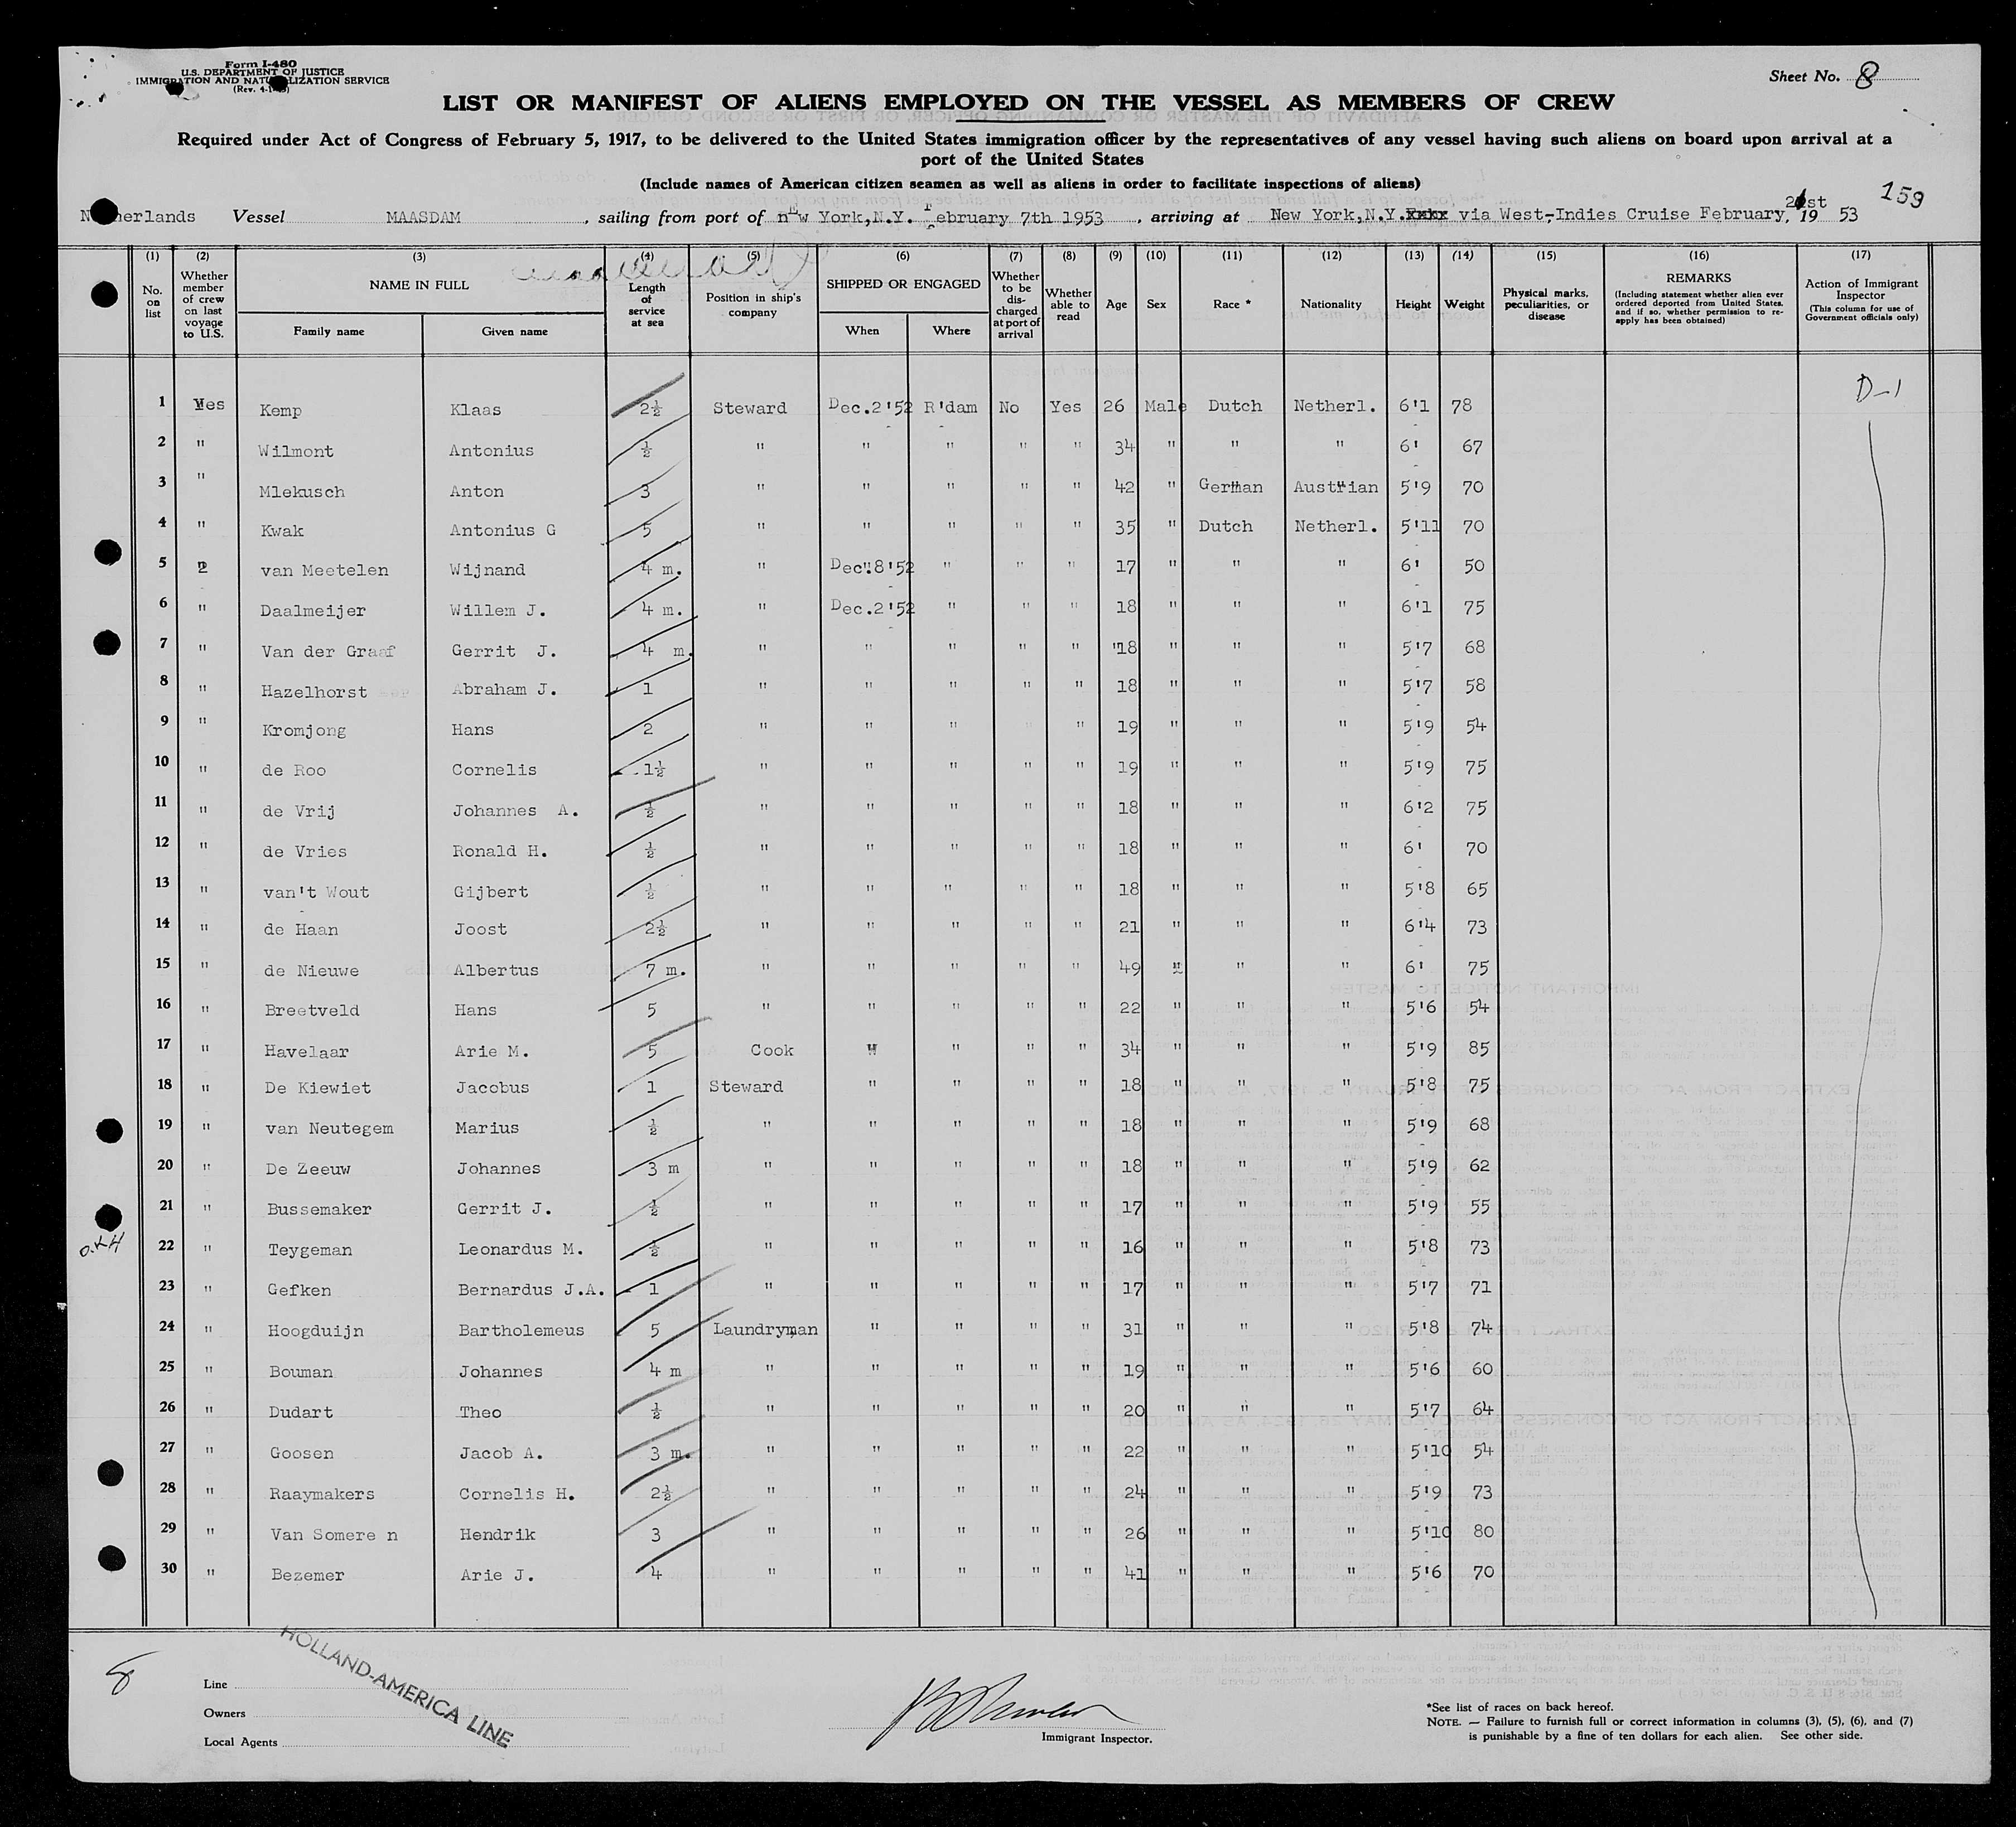 Form I-480
U.S. DEPARTMENT OF JUSTICE
IMMIGRATION AND NATURALIZATION SERVICE
Sheet No. 8
LIST OR MANIFEST OF ALIENS EMPLOYED ON THE VESSEL AS MEMBERS OF CREW
Required under Act of Congress of February 5, 1917, to be delivered to the United States immigration officer by the representatives of any vessel having such aliens on board upon arrival at a
port of the United States
(Include names of American citizen seamen as well as aliens in order to facilitate inspections of aliens)
159
Netherlands Vessel MAASDAM, sailing from port of nEw York,N.Y. February 7th 1953, arriving at New York,N.Y.xxxx via West-Indies Cruise February, 21st 19 53
(1) (2) (3) (4) (5) (6) (7) (8) (9) (10) (11) (12) (13) (14) (15) (16) (17)
No. on list
Whether member of crew on last voyage to U.S.
NAME IN FULL
Family name Given name
Length of service at sea
Position in ship's company
SHIPPED OR ENGAGED
When Where
Whether to be dis-charged at port of arrival
Whether able to read
Age Sex Race * Nationality Height Weight
Physical marks, peculiarities, or disease
REMARKS
(Including statement whether alien ever ordered deported from United States, and if so, whether permission to re-apply has been obtained)
Action of Immigrant Inspector
(This column for use of Government officials only)
D-1
1 Yes Kemp Klaas 2½ Steward Dec.2'52 R'dam No Yes 26 Male Dutch Netherl. 6'1 78
2 " Wilmont Antonius ½ " " " " " 34 " " " 6' 67
3 " Mlekusch Anton 3 " " " " " 42 " German Austrian 5'9 70
4 " Kwak Antonius G 5 " " " " " 35 " Dutch Netherl. 5'11 70
5 " van Meetelen Wijnand 4 m. " Dec.8'52 " " " 17 " " " 6' 50
6 " Daalmeijer Willem J. 4 m. " Dec.2'52 " " " 18 " " " 6'1 75
7 " Van der Graaf Gerrit J. 4 m. " " " " " 18 " " " 5'7 68
8 " Hazelhorst Abraham J. 1 " " " " " 18 " " " 5'7 58
9 " Kromjong Hans 2 " " " " " 19 " " " 5'9 54
10 " de Roo Cornelis 1½ " " " " " 19 " " " 5'9 75
11 " de Vrij Johannes A. ½ " " " " " 18 " " " 6'2 75
12 " de Vries Ronald H. ½ " " " " " 18 " " " 6' 70
13 " van't Wout Gijbert ½ " " " " " 18 " " " 5'8 65
14 " de Haan Joost 2½ " " " " " 21 " " " 6'4 73
15 " de Nieuwe Albertus 7 m. " " " " " 49 " " " 6' 75
16 " Breetveld Hans 5 " " " " " 22 " " " 5'6 54
17 " Havelaar Arie M. 5 Cook " " " " 34 " " " 5'9 85
18 " De Kiewiet Jacobus 1 Steward " " " " 18 " " " 5'8 75
19 " van Neutegem Marius ½ " " " " " 18 " " " 5'9 68
20 " De Zeeuw Johannes 3 m " " " " " 18 " " " 5'9 62
21 " Bussemaker Gerrit J. ½ " " " " " 17 " " " 5'9 55
22 " Teygeman Leonardus M. ½ " " " " " 16 " " " 5'8 73
23 " Gefken Bernardus J.A. 1 " " " " " 17 " " " 5'7 71
24 " Hoogduijn Bartholemeus 5 Laundryman " " " " 31 " " " 5'8 74
25 " Bouman Johannes 4 m " " " " " 19 " " " 5'6 60
26 " Dudart Theo ½ " " " " " 20 " " " 5'7 64
27 " Goosen Jacob A. 3 m. " " " " " 22 " " " 5'10 54
28 " Raaymakers Cornelis H. 2½ " " " " " 24 " " " 5'9 73
29 " Van Somere n Hendrik 3 " " " " " 26 " " " 5'10 80
30 " Bezemer Arie J. 4 " " " " " 41 " " " 5'6 70
8
Line
Owners
Local Agents
HOLLAND-AMERICA LINE
Immigrant Inspector.
*See list of races on back hereof.
NOTE. — Failure to furnish full or correct information in columns (3), (5), (6), and (7)
is punishable by a fine of ten dollars for each alien. See other side.